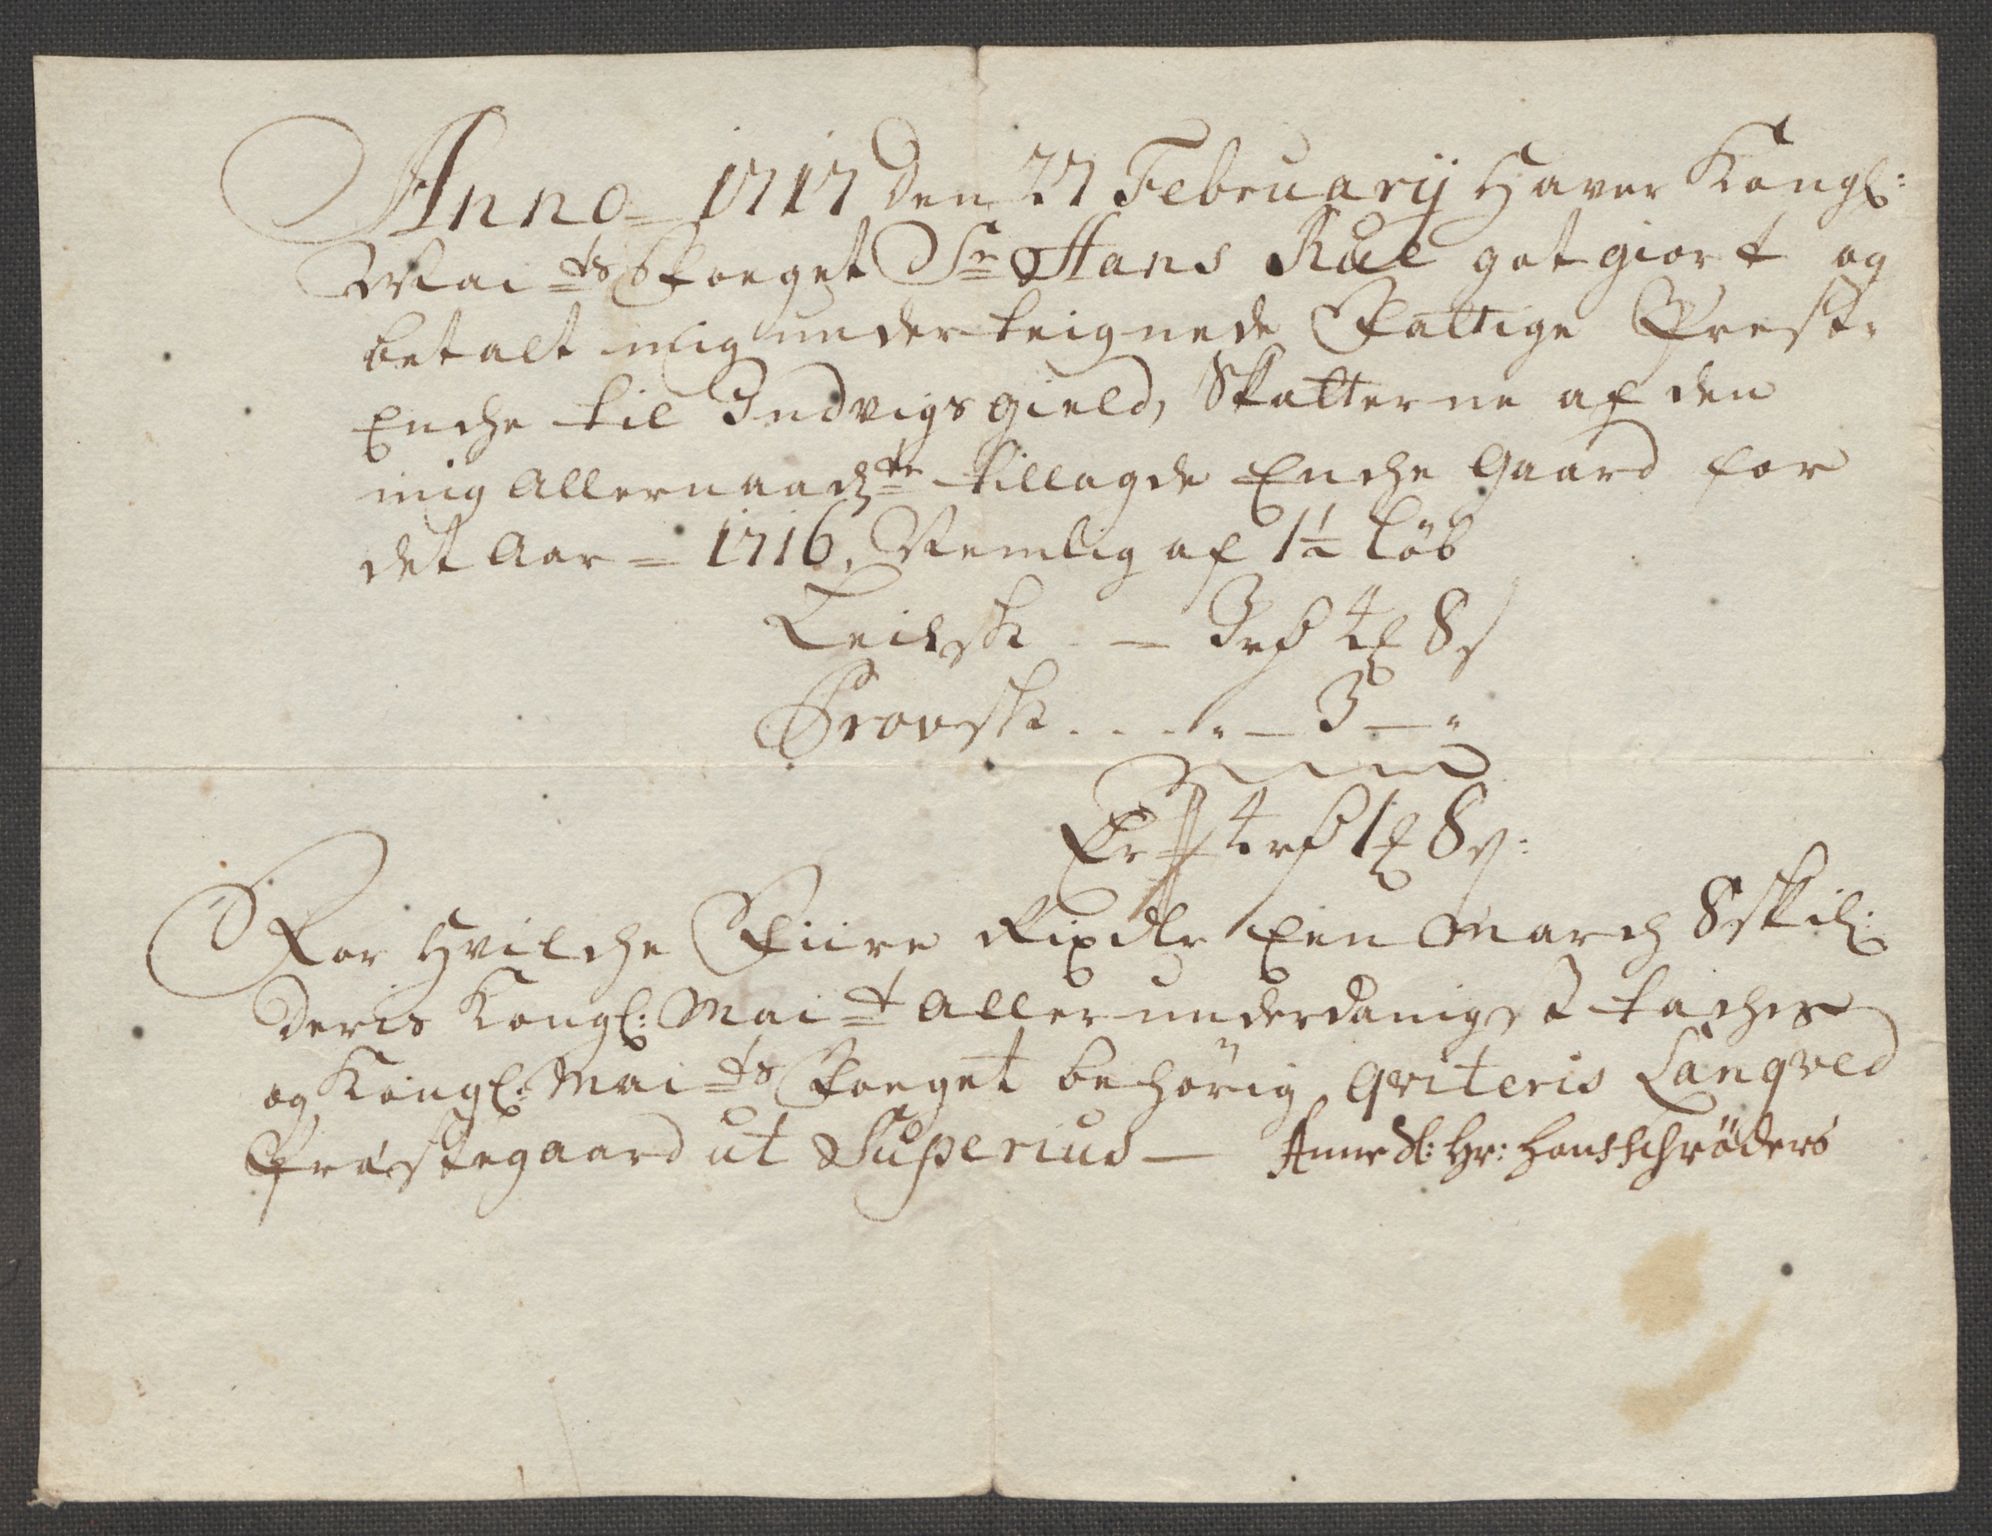 Anno 1717 den 27 Februarij Haver Kongl:
Maits Foeget Sr Hans Rue got giort og
betalt mig underteignede Fattige Prest-
Enche til Indvigs gield, Skatterne af den
mig Allernaadste tillagde Enche Gaard for
det Aar = 1716, Nemlig af 1½ Løb
Leilsk — 3 rf 4 ℔ 8 s
Provsk . . . . " — 3 — "
Er 4 rf 1 ℔ 8 s:
For Hvilche Fiire Rixdlr Een March 8 skil:
Deris Kongl: Mait Allerunderdanigst taches
og Kongl: Maits Foeget behörig qviteris Langved
Præstegaard ut Superius — Anne Sl: Hr: Hans Schröders